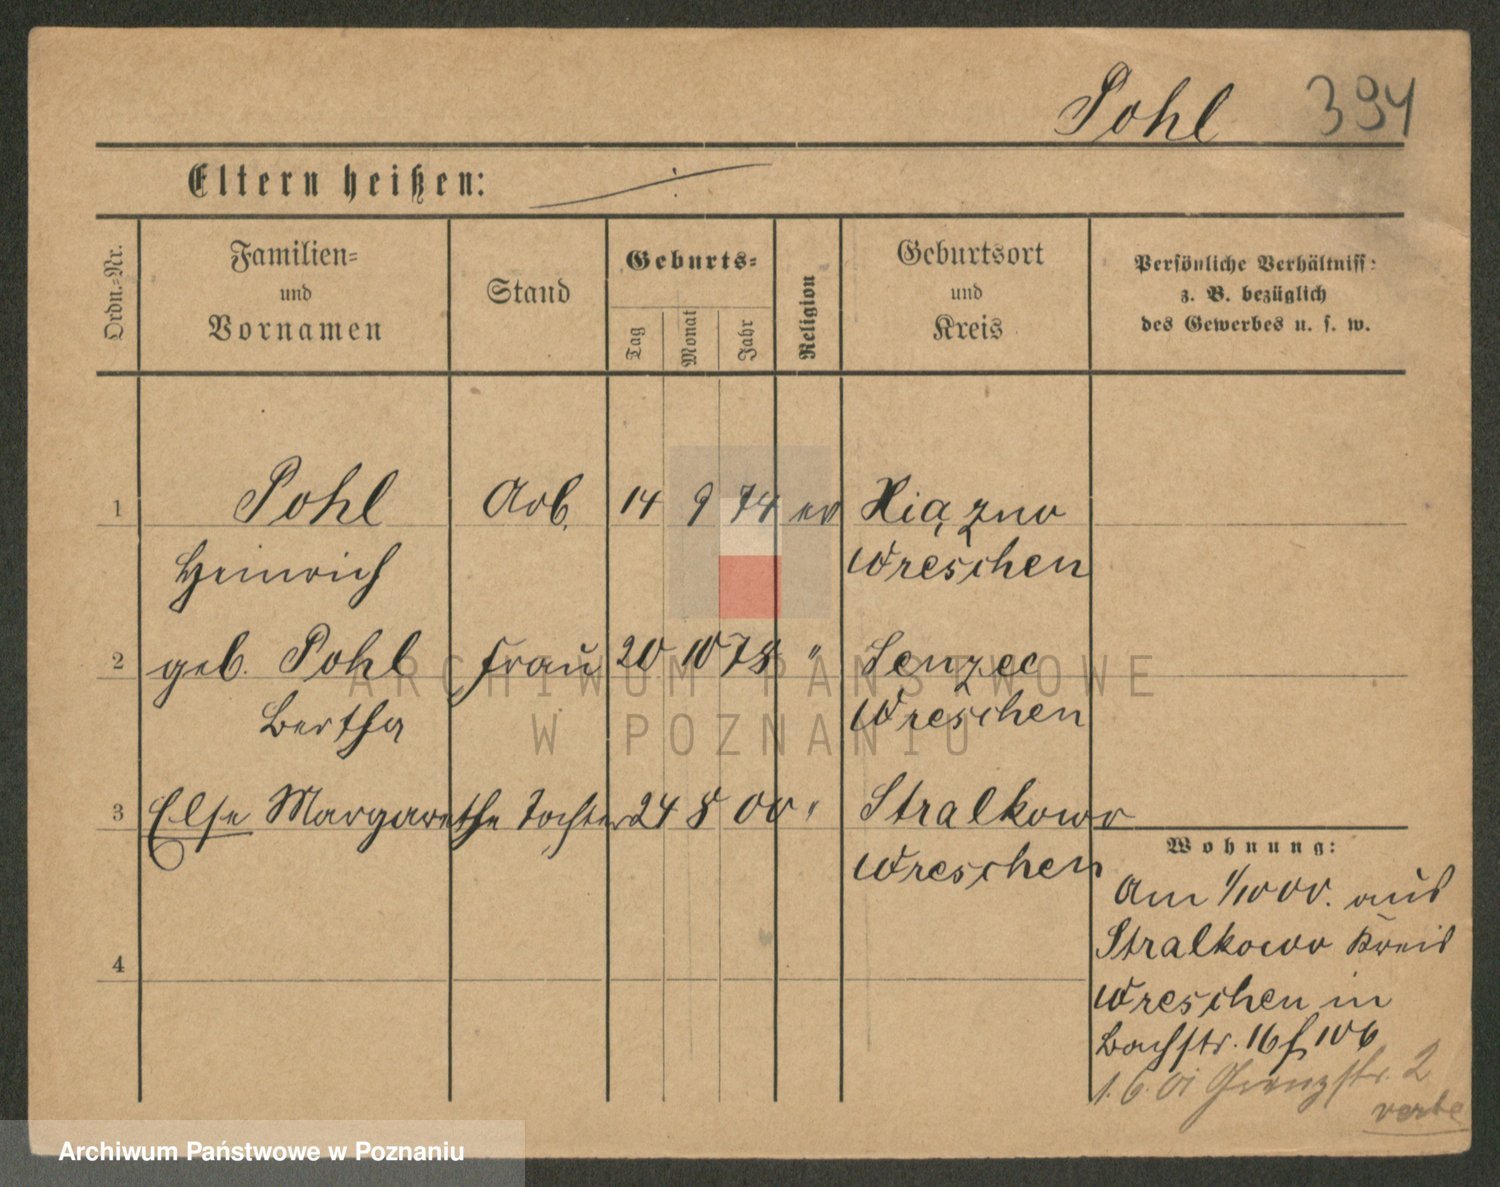 Pohl 394
Eltern heißen:
Ordn.-Nr.
Familien-
und
Vornamen
Stand
Geburts-
Tag
Monat
Jahr
Religion
Geburtsort
und
Kreis
Persönliche Verhältniss:
z. B. bezüglich
des Gewerbes u. s. w.
1 Pohl Arb. 14 9 74 ev Xiązno
Heinrich Wreschen
2 geb. Pohl Frau 20 10 78 " Lenzec
Bertha Wreschen
3 Else Margarethe Tochter 24 8 00 " Stralkowo
Wreschen
4
Wohnung:
Am 1/10 00. aus
Stralkowo Kreis
Wreschen in
Bachstr. 16
1.6.01 Grenzstr. 2
ARCHIWUM PAŃSTWOWE
W POZNANIU
Archiwum Państwowe w Poznaniu